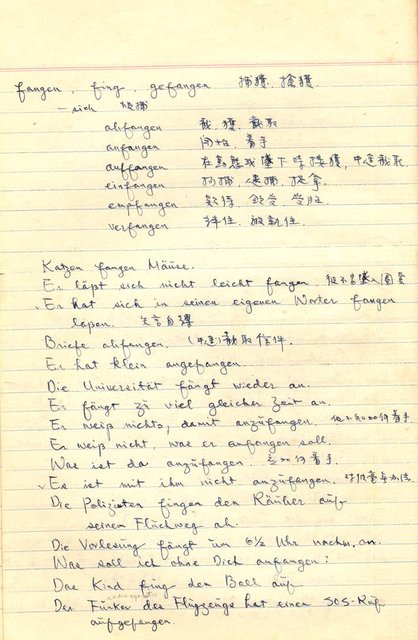 fangen, fing, gefangen 捕獲, 捨獲
— sich 被捕
abfangen 截, 獲, 截取
anfangen 開始, 着手
auffangen
einfangen 拘捕, 逮捕, 捉拿
empfangen 欵待, 領受, 受胎
verfangen 絆住,
Katzen fangen Mäuse.
Er läßt sich nicht leicht fangen.
Er hat sich in seinen eigenen Worter fangen
laßen.
Briefe abfangen. (中途)截取信件.
Er hat klein angefangen.
Die Universität fängt wieder an.
Er fängt zu viel gleicher Zeit an.
Er weiß nichts, damit anzufangen. 他不知如何着手.
Er weiß nicht, was er anfangen soll.
Was ist da anzufangen. 如何着手.
Es ist mit ihm nicht anzufangen.
Die Polizisten fingen den Räuber auf
seinem Fluchweg ab.
Die Vorlesung fängt um 6½ Uhr nachm. an.
Was soll ich ohne Dich anfangen?
Das Kind fing den Ball auf.
Der Funker des Flugzeugs hat einen SOS-Ruf
aufgefangen.